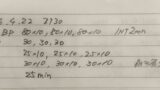 .4.22 7130
BP 60×10, 60×10, 60×10 INT 2min
30, 30, 30
25×10, 25×10, 25×10
30×10, 30×10, 30×10
25min